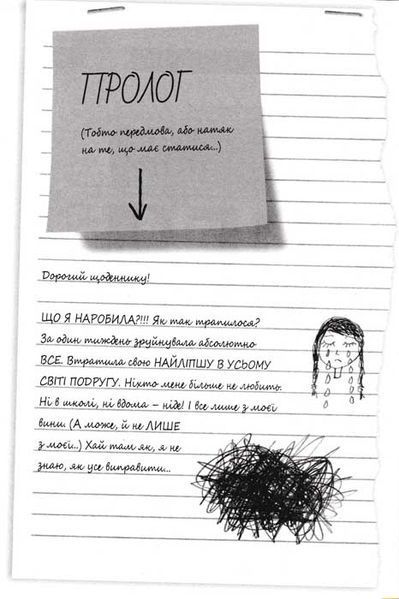 ПРОЛОГ
(Тобто передмова, або натяк
на те, що має статися...)
Дорогий щоденнику!
ЩО Я НАРОБИЛА?!!! Як так трапилося?
За один тиждень зруйнувала абсолютно
ВСЕ. Втратила свою НАЙЛІПШУ В УСЬОМУ
СВІТІ ПОДРУГУ. Ніхто мене більше не любить.
Ні в школі, ні вдома – ніде! І все лише з моєї
вини. (А може, й не ЛИШЕ
з моєї..) Хай там як, я не
знаю, як усе виправити...